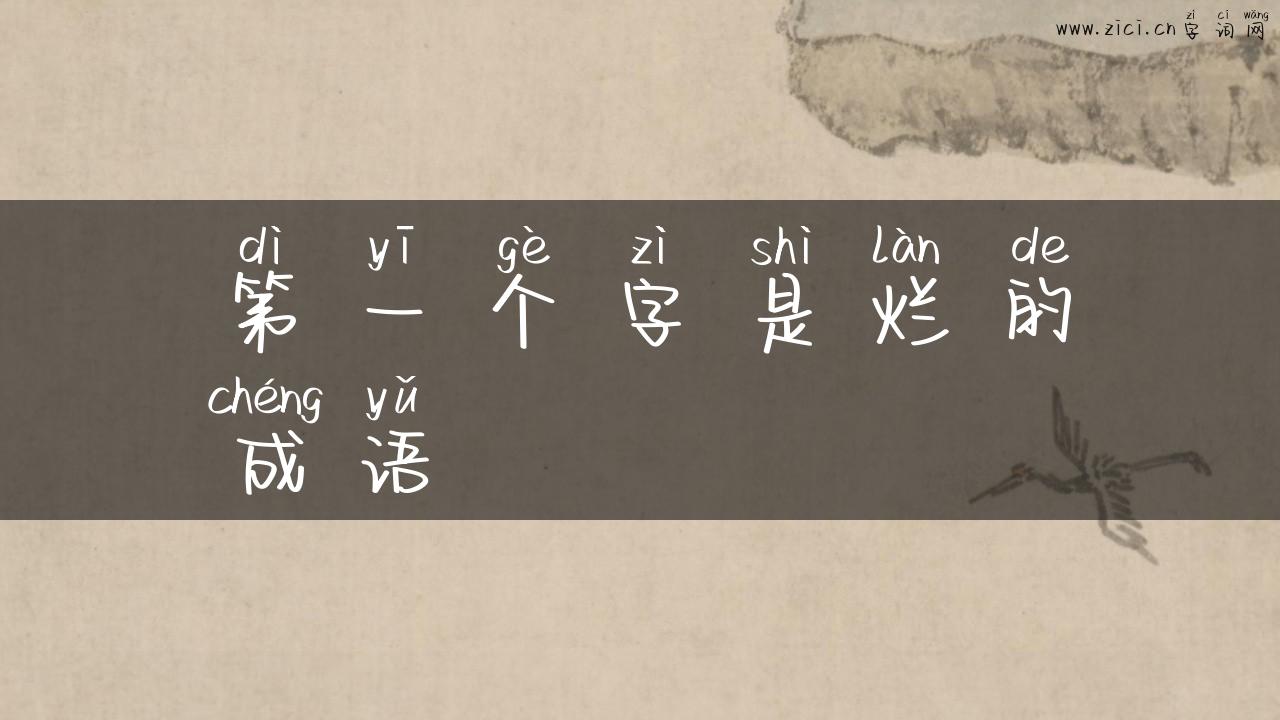 zì cí wǎng
www.zici.cn 字词网
dì yī gè zì shì làn de
第一个字是烂的
chéng yǔ
成语